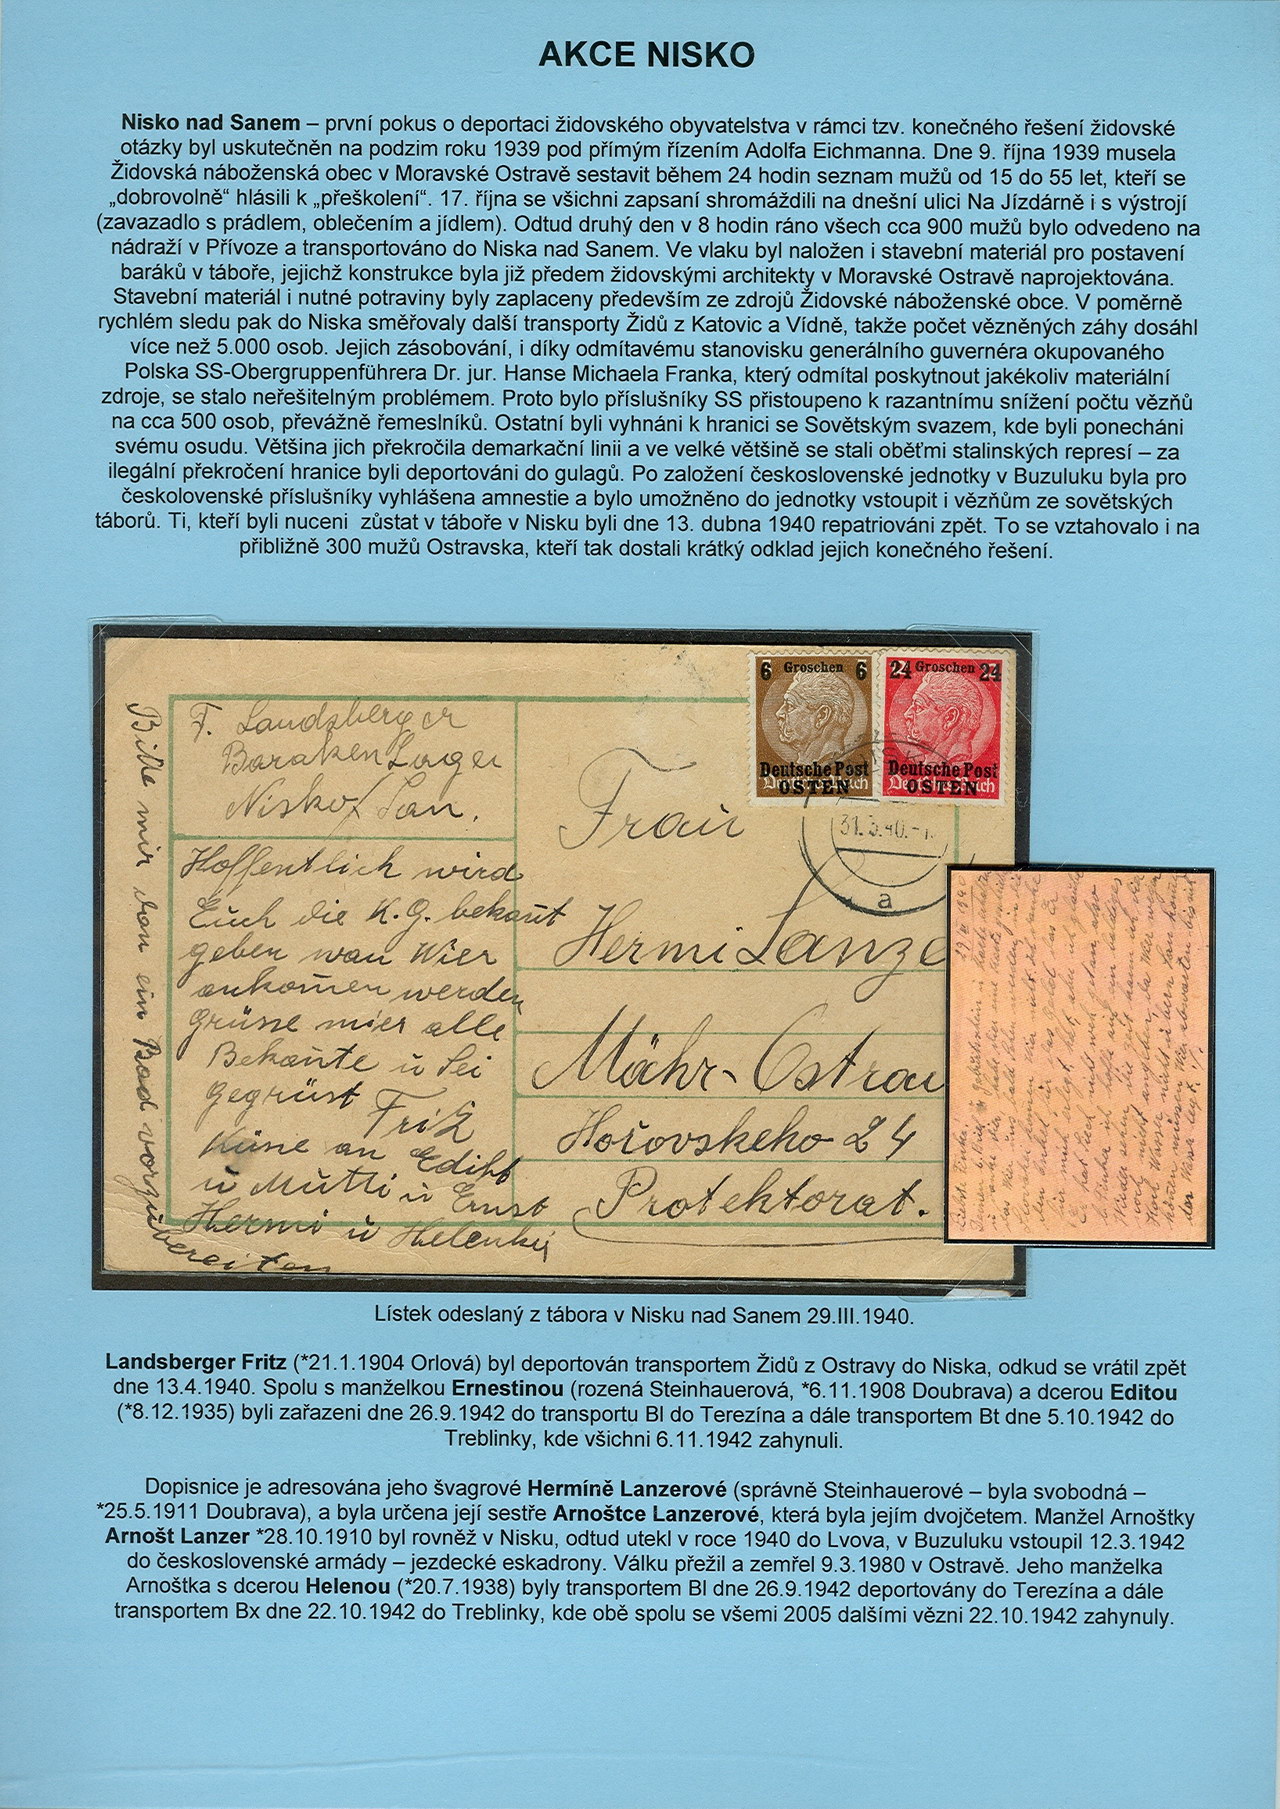 AKCE NISKO
Nisko nad Sanem – první pokus o deportaci židovského obyvatelstva v rámci tzv. konečného řešení židovské
otázky byl uskutečněn na podzim roku 1939 pod přímým řízením Adolfa Eichmanna. Dne 9. října 1939 musela
Židovská náboženská obec v Moravské Ostravě sestavit během 24 hodin seznam mužů od 15 do 55 let, kteří se
„dobrovolně“ hlásili k „přeškolení“. 17. října se všichni zapsaní shromáždili na dnešní ulici Na Jízdárně i s výstrojí
(zavazadlo s prádlem, oblečením a jídlem). Odtud druhý den v 8 hodin ráno všech cca 900 mužů bylo odvedeno na
nádraží v Přívoze a transportováno do Niska nad Sanem. Ve vlaku byl naložen i stavební materiál pro postavení
baráků v táboře, jejichž konstrukce byla již předem židovskými architekty v Moravské Ostravě naprojektována.
Stavební materiál i nutné potraviny byly zaplaceny především ze zdrojů Židovské náboženské obce. V poměrně
rychlém sledu pak do Niska směřovaly další transporty Židů z Katovic a Vídně, takže počet vězněných záhy dosáhl
více než 5.000 osob. Jejich zásobování, i díky odmítavému stanovisku generálního guvernéra okupovaného
Polska SS-Obergruppenführera Dr. jur. Hanse Michaela Franka, který odmítal poskytnout jakékoliv materiální
zdroje, se stalo neřešitelným problémem. Proto bylo příslušníky SS přistoupeno k razantnímu snížení počtu vězňů
na cca 500 osob, převážně řemeslníků. Ostatní byli vyhnáni k hranici se Sovětským svazem, kde byli ponecháni
svému osudu. Většina jich překročila demarkační linii a ve velké většině se stali oběťmi stalinských represí – za
ilegální překročení hranice byli deportováni do gulagů. Po založení československé jednotky v Buzuluku byla pro
českolovenské příslušníky vyhlášena amnestie a bylo umožněno do jednotky vstoupit i vězňům ze sovětských
táborů. Ti, kteří byli nuceni zůstat v táboře v Nisku byli dne 13. dubna 1940 repatriováni zpět. To se vztahovalo i na
přibližně 300 mužů Ostravska, kteří tak dostali krátký odklad jejich konečného řešení.
6 Groschen 6
Deutsche Post
OSTEN
24 Groschen 24
Deutsche Post
OSTEN
31.3.40.
a
F. Landsberger
Baraken Lager
Nisko/San.
Hoffentlich wird
Euch die K.G. bekant
geben wan Wier
ankommen werden
Grüsse mier alle
Bekante u Sei
gegrüst
Fritz
Küsse an Edith
u Mutti u Ernst
Hermi u Helenky
Bitte mir dan ein Bad vorzubereiten
Frau
Hermi Lanze
Mähr-Ostrau
Hořovskeho 24
Protektorat.
Lístek odeslaný z tábora v Nisku nad Sanem 29.III.1940.
Landsberger Fritz (*21.1.1904 Orlová) byl deportován transportem Židů z Ostravy do Niska, odkud se vrátil zpět
dne 13.4.1940. Spolu s manželkou Ernestinou (rozená Steinhauerová, *6.11.1908 Doubrava) a dcerou Editou
(*8.12.1935) byli zařazeni dne 26.9.1942 do transportu Bl do Terezína a dále transportem Bt dne 5.10.1942 do
Treblinky, kde všichni 6.11.1942 zahynuli.
Dopisnice je adresována jeho švagrové Hermíně Lanzerové (správně Steinhauerové – byla svobodná –
*25.5.1911 Doubrava), a byla určena její sestře Arnoštce Lanzerové, která byla jejím dvojčetem. Manžel Arnoštky
Arnošt Lanzer *28.10.1910 byl rovněž v Nisku, odtud utekl v roce 1940 do Lvova, v Buzuluku vstoupil 12.3.1942
do československé armády – jezdecké eskadrony. Válku přežil a zemřel 9.3.1980 v Ostravě. Jeho manželka
Arnoštka s dcerou Helenou (*20.7.1938) byly transportem Bl dne 26.9.1942 deportovány do Terezína a dále
transportem Bx dne 22.10.1942 do Treblinky, kde obě spolu se všemi 2005 dalšími vězni 22.10.1942 zahynuly.